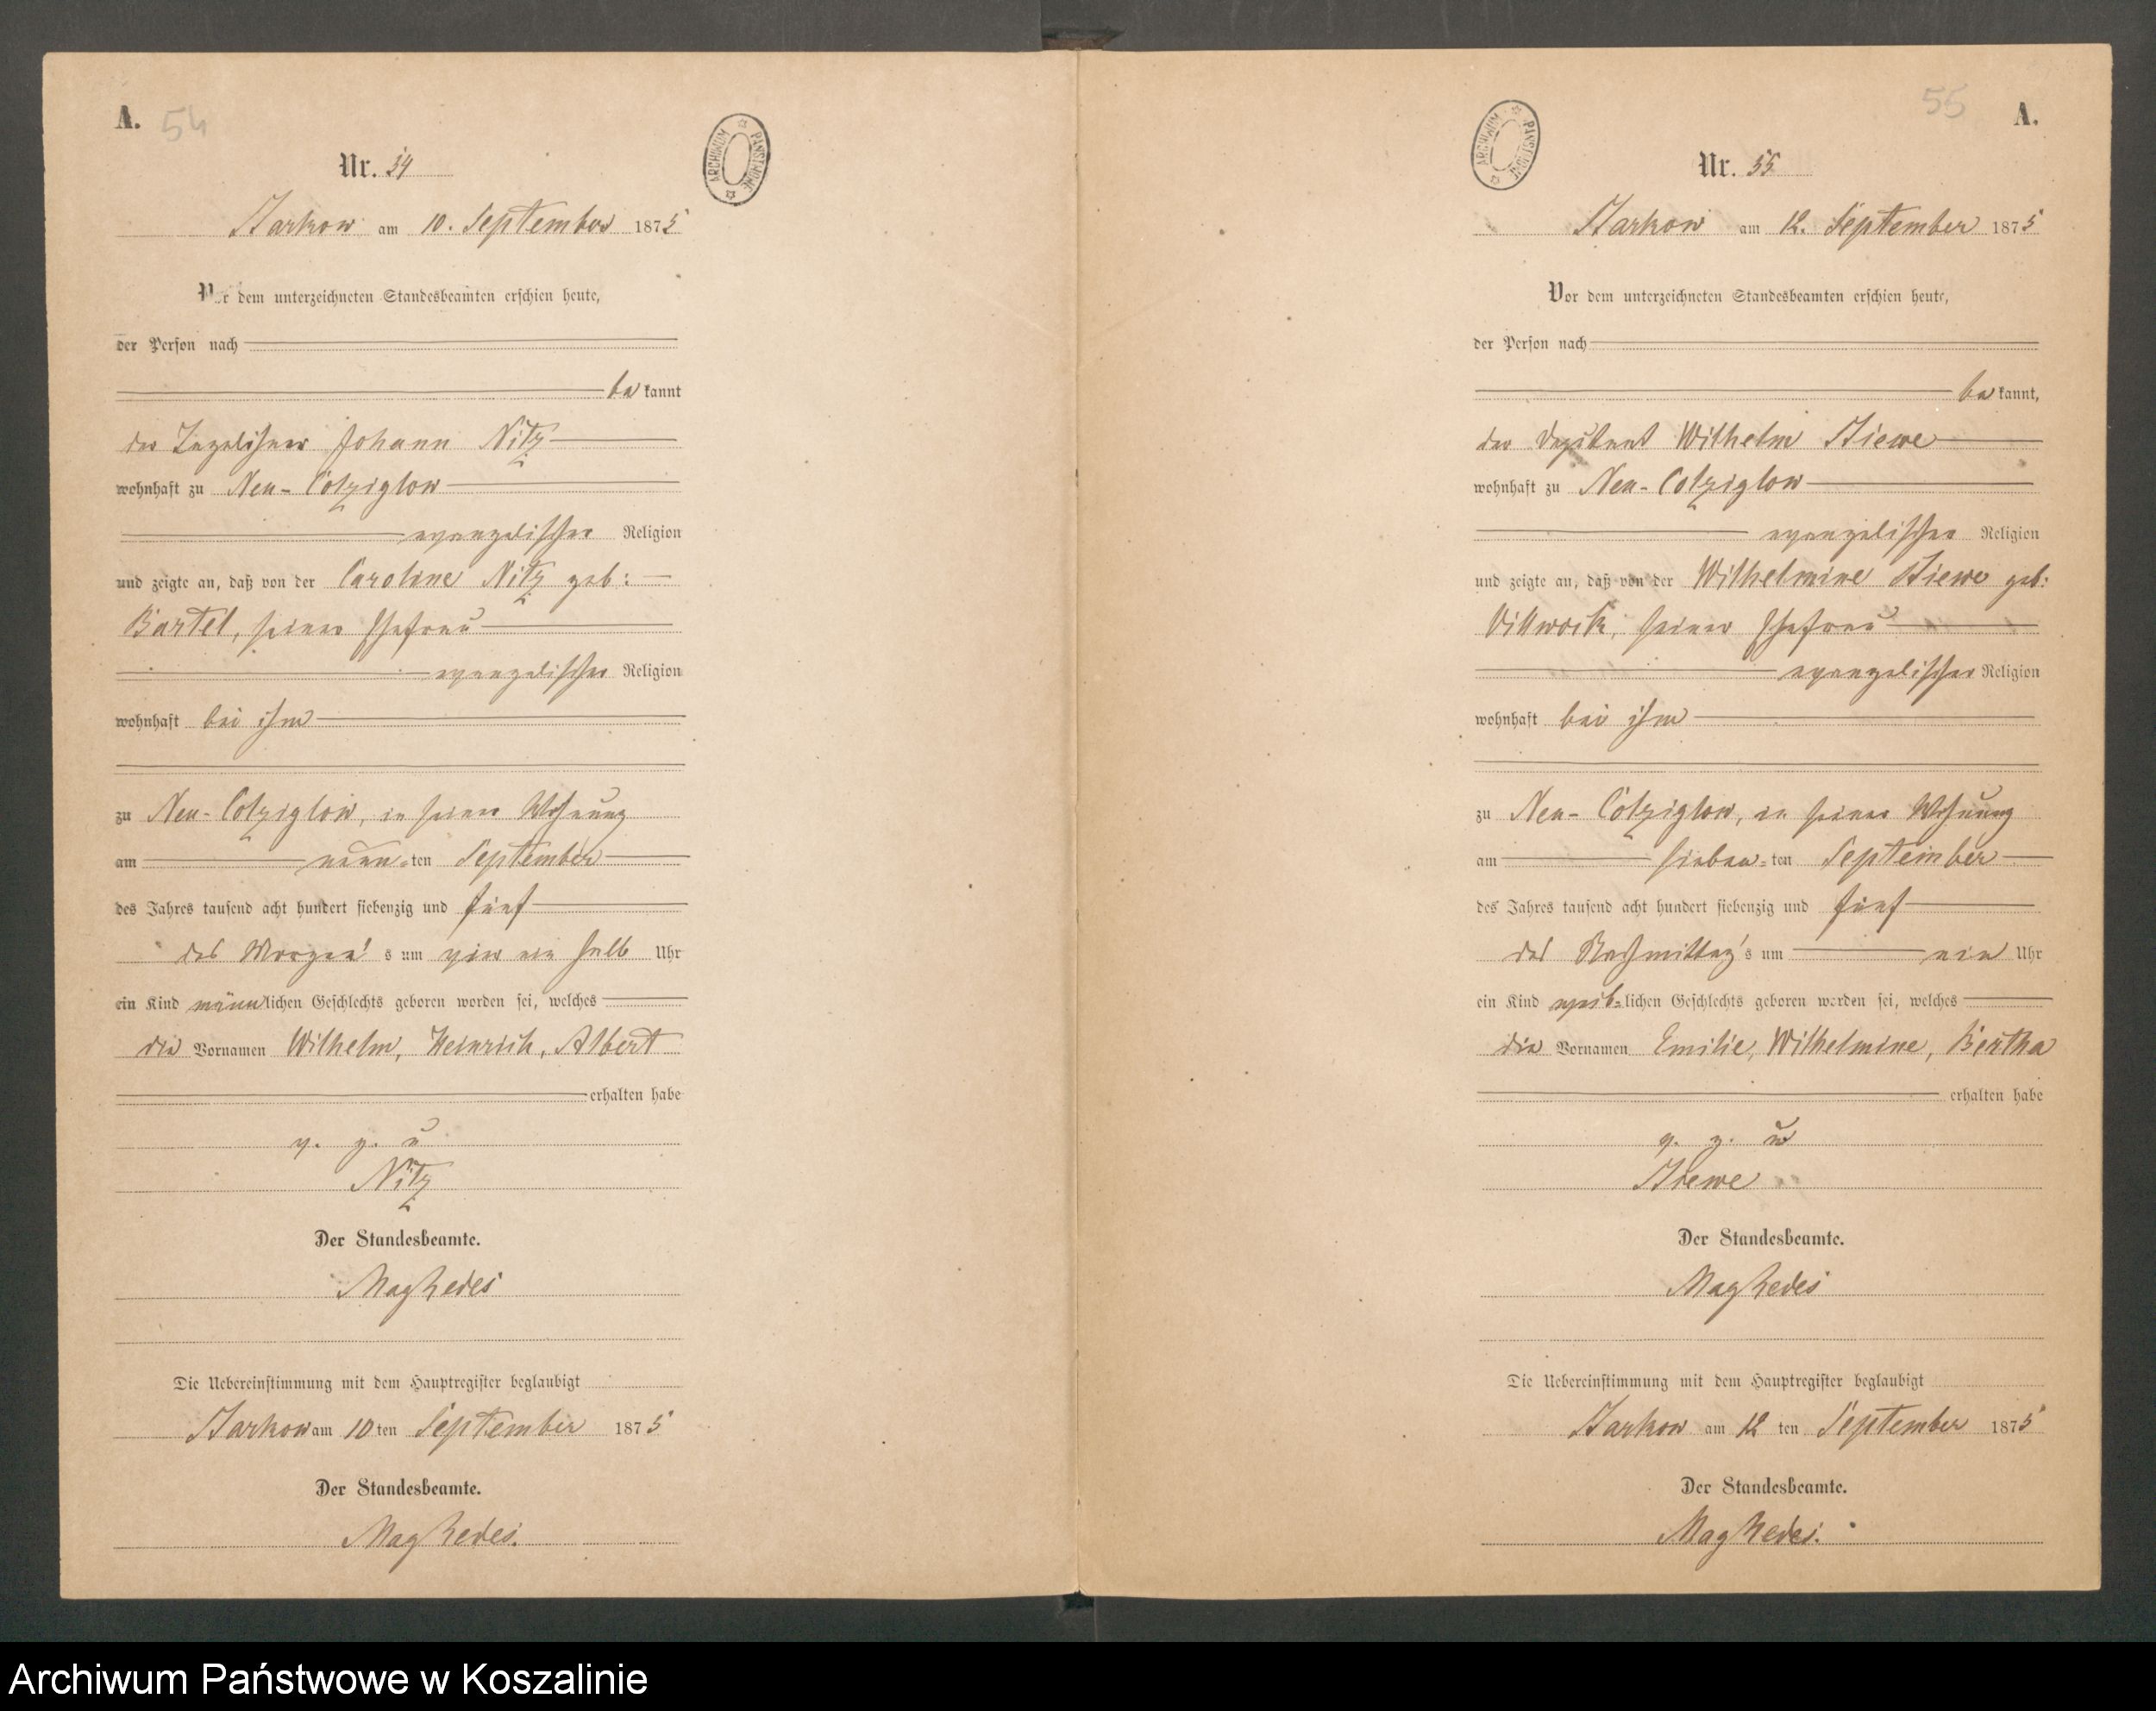 A. 54
ARCHIWUM PAŃSTWOWE
Nr. 54
Starkow am 10. September 1875
Vor dem unterzeichneten Standesbeamten erschien heute,
der Person nach
bekannt
der Johann Nitz
wohnhaft zu Neu-Colziglow
evangelischer Religion
und zeigte an, daß von der Caroline Nitz geb:
Bartel, seiner Ehefrau
evangelischer Religion
wohnhaft bei ihm
zu Neu-Colziglow, in seiner Wohnung
am neun-ten September
des Jahres tausend acht hundert siebenzig und fünf
des Morgen's um ein halb Uhr
ein Kind männlichen Geschlechts geboren worden sei, welches
die Vornamen Wilhelm, Heinrich, Albert
erhalten habe
v. g. u
Nitz
Der Standesbeamte.
Die Uebereinstimmung mit dem Hauptregister beglaubigt
Starkow am 10 ten September 1875
Der Standesbeamte.
55 A.
ARCHIWUM PAŃSTWOWE
Nr. 55
Starkow am 12. September 1875
Vor dem unterzeichneten Standesbeamten erschien heute,
der Person nach
bekannt,
der Deputant Wilhelm Stewe
wohnhaft zu Neu-Colziglow
evangelischer Religion
und zeigte an, daß von der Wilhelmine geb:
Villwock, seiner Ehefrau
evangelischer Religion
wohnhaft bei ihm
zu Neu-Colziglow, in seiner Wohnung
am sieben-ten September
des Jahres tausend acht hundert siebenzig und fünf
des Nachmittag's um ein Uhr
ein Kind weib-lichen Geschlechts geboren worden sei, welches
die Vornamen Emilie, Wilhelmine, Bertha
erhalten habe
v. g. u
Stewe
Der Standesbeamte.
Die Uebereinstimmung mit dem Hauptregister beglaubigt
Starkow am 12 ten September 1875
Der Standesbeamte.
Archiwum Państwowe w Koszalinie